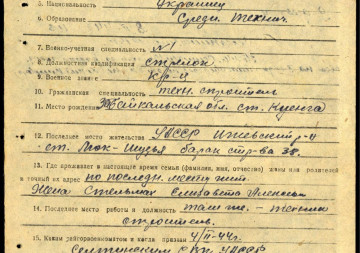 5. Национальность Украинец
6. Образование Средн. технич.
7. Военно-учетная специальность №1
8. Должностная квалификация стрелок
9. Военное звание Кр-ц
10. Гражданская специальность техн. строитель
11. Место рождения Забайкальская обл. ст. Куенга
12. Последнее место жительства УАССР Ижевский р-н
ст. Люк- барак стр-ва 38.
13. Где проживает в настоящее время семья (фамилия, имя, отчество) жены или родителей
и точный их адрес по последн. месту жит.
Жена Стельмах Елизавета
14. Последнее место работы и должность там же - техник
строитель.
15. Каким райгорвоенкоматом и когда призван 4/II-44г.
РВК УАССР